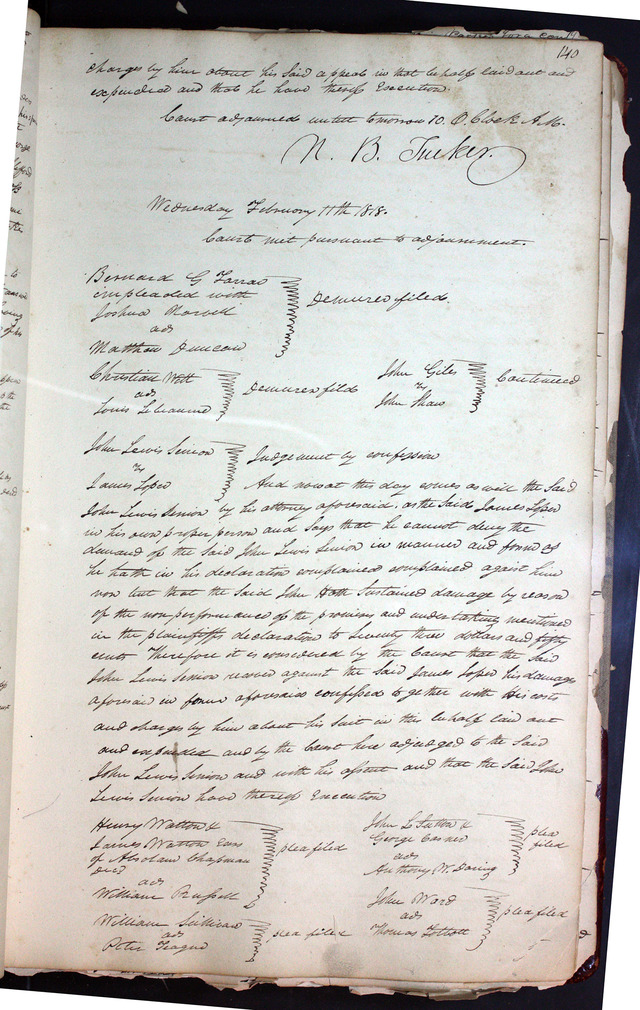 140
charges by him about his Said appeal in that behalf laid out and
expended and that he have thereof Execution.
Court adjourned until tomorrow 10. O.Clock A.M.
N. B. Tucker.
Wednesday February 11th 1818.
Court met pursuant to adjournment.
Bernard G Farrar
impleaded with
Joshua Norvell
ads
Matthew Duncan
Demurer filed.
Christian Witt
ads
Louis Lebeaume
Demurer filed
John Giles
vs
John Shaw
Continued
John Lewis Senior
vs
James Loper
Judgement by confession
And now at this day comes as well the Said
John Lewis Senior by his attorney aforesaid, as the Said James Loper
in his own proper person and Says that he cannot deny the
demand of the Said John Lewis Senior in manner and form as
he hath in his declaration complained complained against him
nor but that the Said John Hath Sustained damage by reason
of the non performance of the promises and undertaking mentioned
in the plaintiffs declaration to Seventy three dollars and fifty
cents Therefore it is considered by the Court that the Said
John Lewis Senior recover against the Said James Loper his damage
aforesaid in form aforesaid confessed together with His costs
and charges by him about his Suit in this behalf laid out
and expended and by the Court here adjudged to the Said
John Lewis Senior and with his assent and that the Said John
Lewis Senior have thereof Execution
Henry Watton &
James Watton Exrs
of Absolam Chapman
decd
ads
William Russell
plea filed
John L Sutton &
George Casner
ads
Anthony W. Daring
plea
filed
William Sullivan
ads
Peter Teague
plea filed
John Ward
ads
Thomas
plea filed